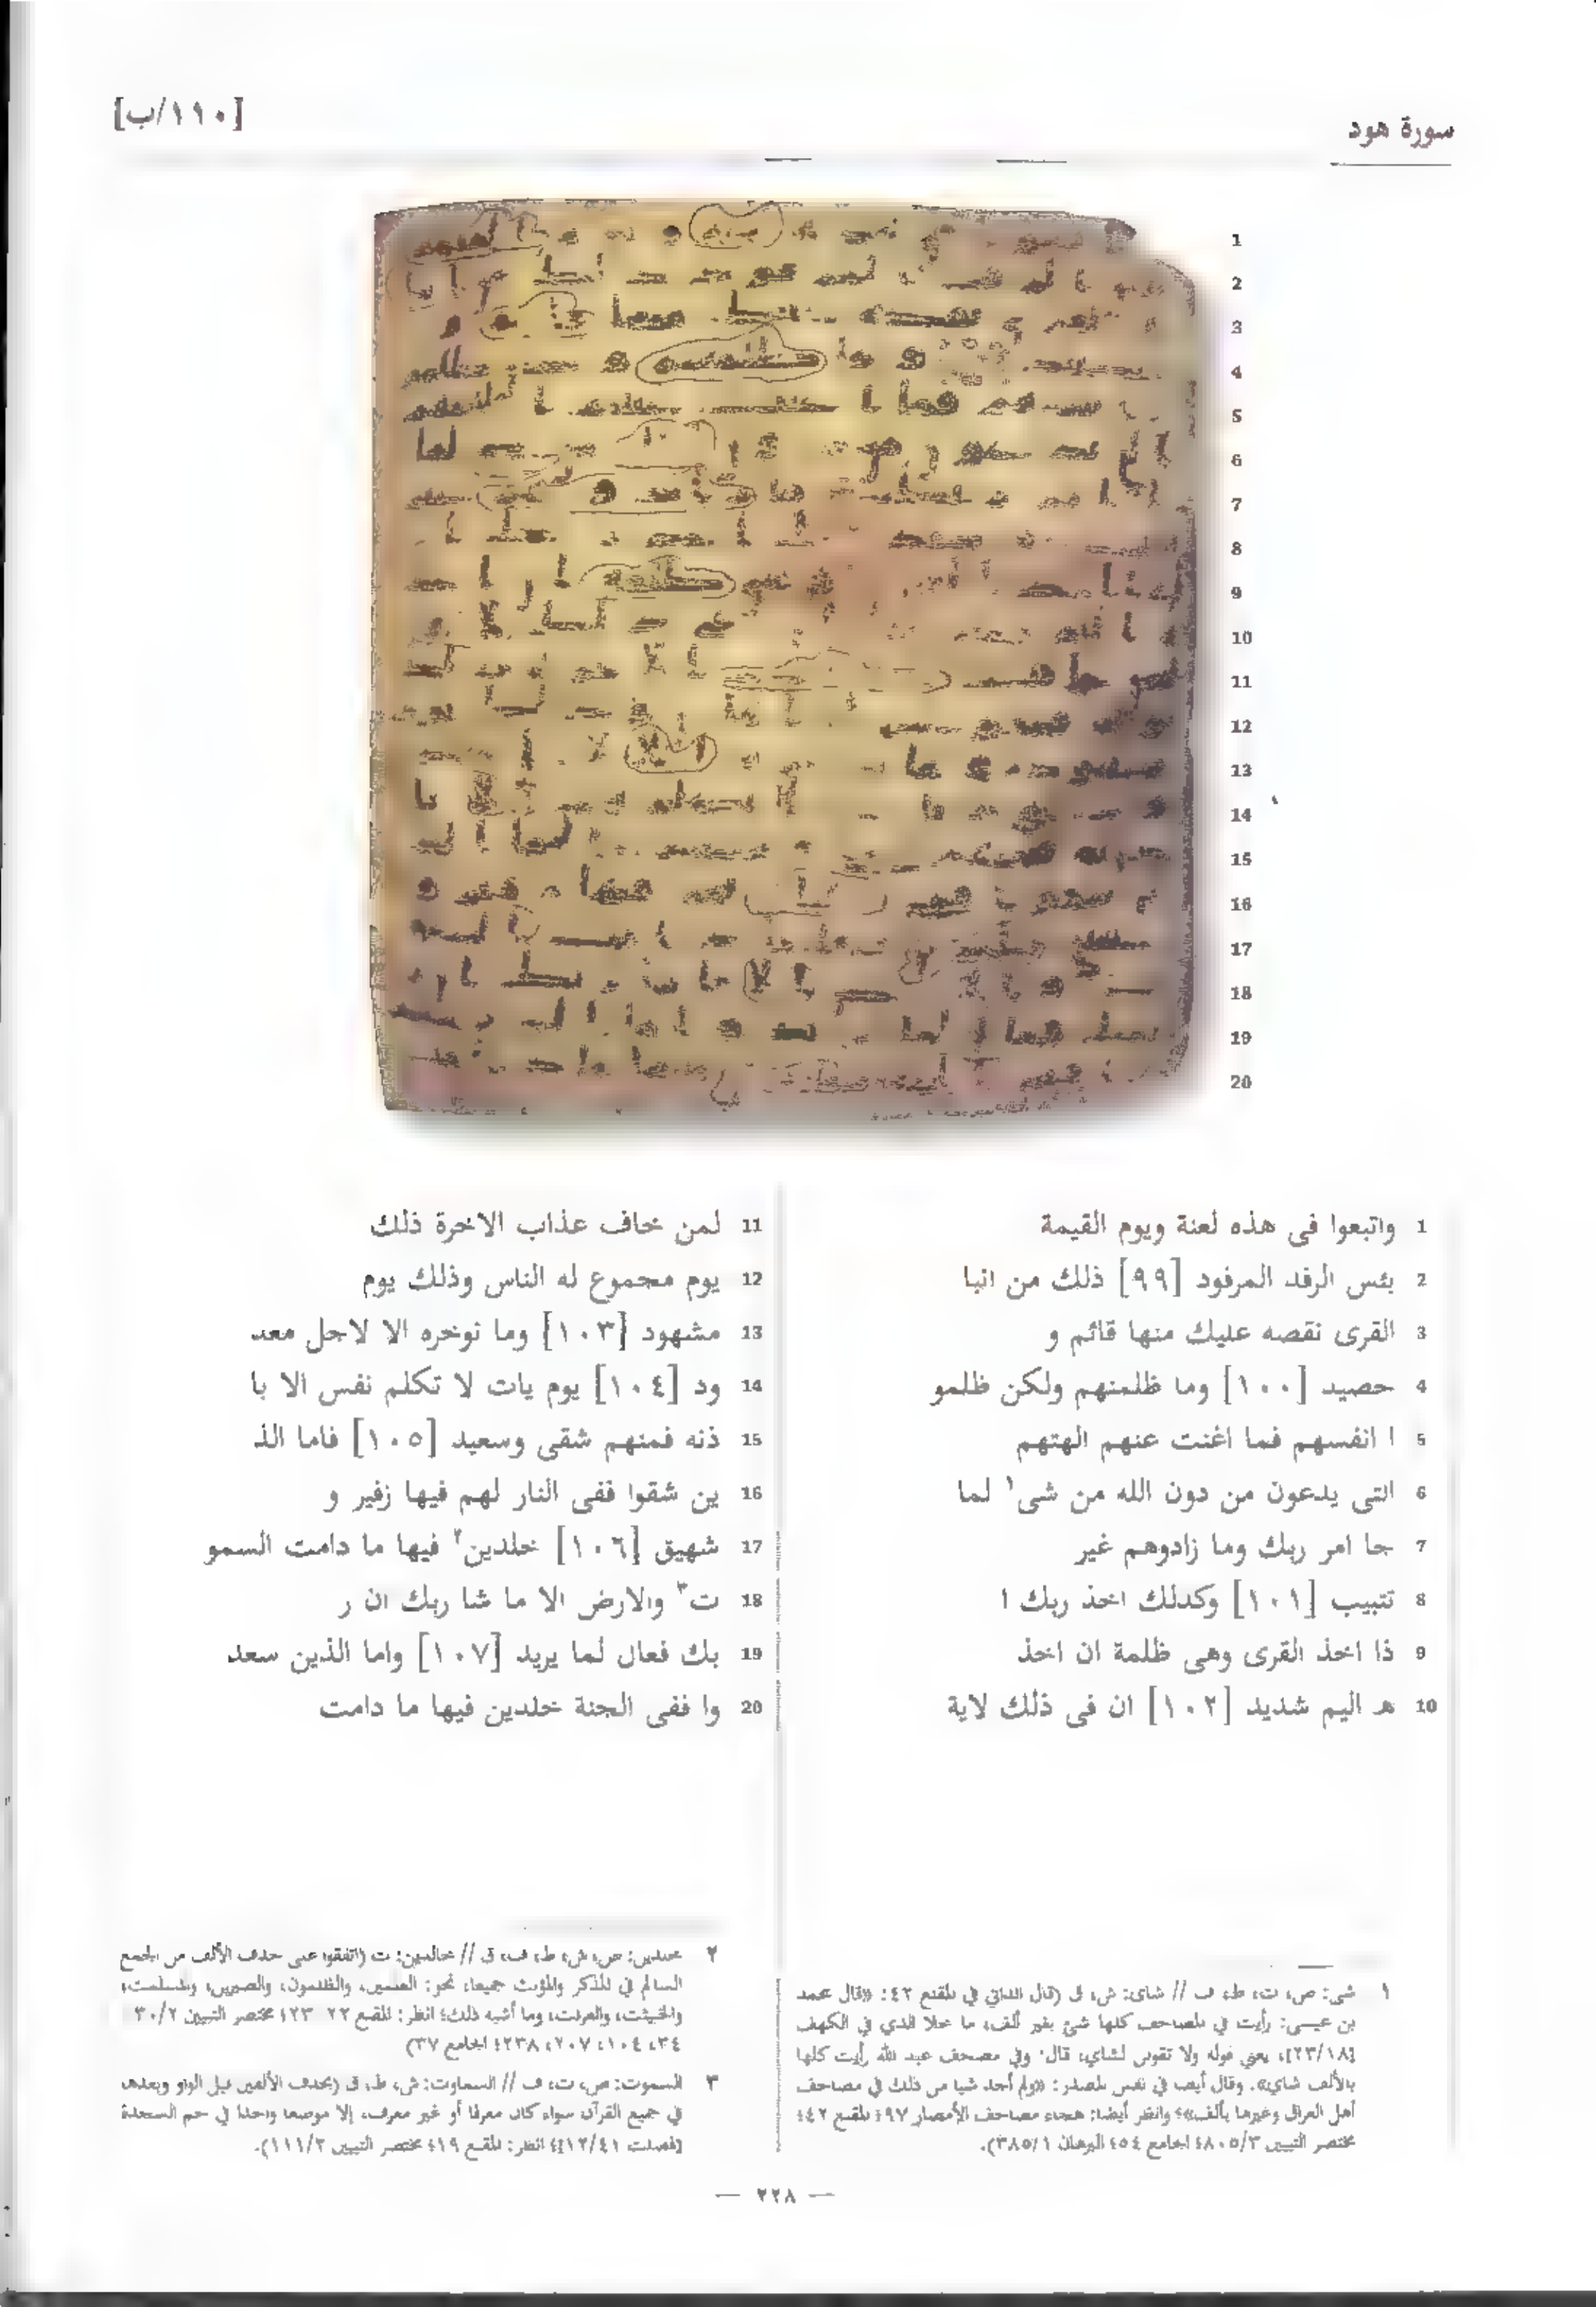 سورة هود
[١١٠/ب]
1
2
3
4
5
6
7
8
9
10
11
12
13
14
15
16
17
18
19
20
1 واتبعوا فى هذه لعنة ويوم القيمة
2 بئس الرفد المرفود [٩٩] ذلك من انبا
3 القرى نقصه عليك منها قائم و
4 حصيد [١٠٠] وما ظلمنهم ولكن ظلمو
5 ا انفسهم فما اغنت عنهم الهتهم
6 التى يدعون من دون الله من شى١ لما
7 جا امر ربك وما زادوهم غير
8 تتبيب [١٠١] وكذلك اخذ ربك ا
9 ذا اخذ القرى وهى ظلمة ان اخذ
10 ه اليم شديد [١٠٢] ان فى ذلك لاية
11 لمن خاف عذاب الاخرة ذلك
12 يوم مجموع له الناس وذلك يوم
13 مشهود [١٠٣] وما نوخره الا لاجل معد
14 ود [١٠٤] يوم يات لا تكلم نفس الا با
15 ذنه فمنهم شقى وسعيد [١٠٥] فاما الذ
16 ين شقوا ففى النار لهم فيها زفير و
17 شهيق [١٠٦] خلدين٢ فيها ما دامت السمو
18 ت٣ والارض الا ما شا ربك ان ر
19 بك فعال لما يريد [١٠٧] واما الذين سعد
20 وا ففى الجنة خلدين فيها ما دامت
١ شى: ص، ت، ط، ف // شاى: ش، ق (قال الداني في المقنع ٤٢: «قال محمد
بن عيسى: رأيت في المصاحف كلها شئ بغير ألف، ما خلا الذي في الكهف
[٢٣/١٨]، يعني قوله ولا تقولن لشاي، قال: وفي مصحف عبد الله رأيت كلها
بالألف شاي». وقال أيضا في نفس المصدر: «ولم أجد شيا من ذلك في مصاحف
أهل العراق وغيرها بألف»؛ وانظر أيضا: هجاء مصاحف الأمصار ٩٧؛ المقنع ٤٢؛
مختصر التبيين ٨٠٥/٣؛ الجامع ٥٤؛ البرهان ٣٨٥/١).
٢ خلدين: ص، ش، ط، ف، ق // خالدين: ت (اتفقوا على حذف الألف من الجمع
السالم في المذكر والمؤنث جميعا، نحو: العلمين، والظلمون، والصبرين، والمسلمت،
والخبيثت، والغرفت، وما أشبه ذلك؛ انظر: المقنع ٢٢-٢٣؛ مختصر التبيين ٣٠/٢،
٣٤، ١٠٤، ٢٠٧، ٢٣٨؛ الجامع ٣٧)
٣ السموت: ص، ت، ف // السماوت: ش، ط، ق (بحذف الألفين قبل الواو وبعدها
في جميع القرآن سواء كان معرفا أو غير معرف، إلا موضعا واحدا في حم السجدة
[فصلت ١٢/٤١]؛ انظر: المقنع ١٩؛ مختصر التبيين ١١١/٢).
— ٢٢٨ —